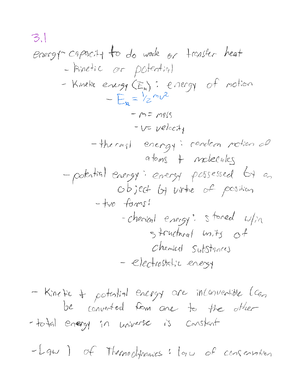 3.1
energy - capacity to do work or transfer heat
- kinetic or potential
- Kinetic energy (Ek): energy of motion
- Ek = 1/2 mv²
- m = mass
- v = velocity
- thermal energy: random motion of
atoms + molecules
- potential energy: energy possessed by an
object by virtue of position
- two forms:
- chemical energy: stored w/in
structural units of
chemical substances
- electrostatic energy
- Kinetic + potential energy are (can
be converted from one to the other
- total energy in universe is constant
- Law 1 of Thermodynamics: law of conservation